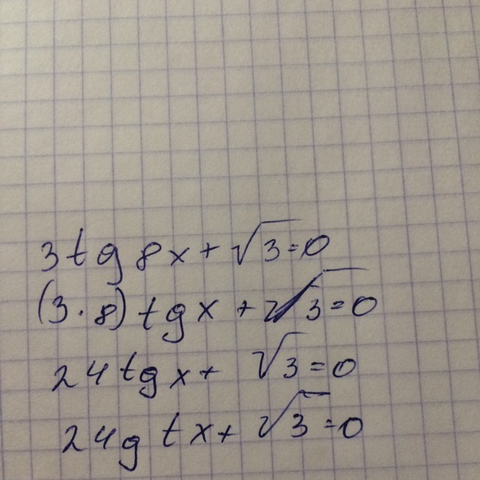 3tg 8x + √3 = 0
(3·8) tg x + √3 = 0
24 tg x + √3 = 0
24g tx + √3 = 0